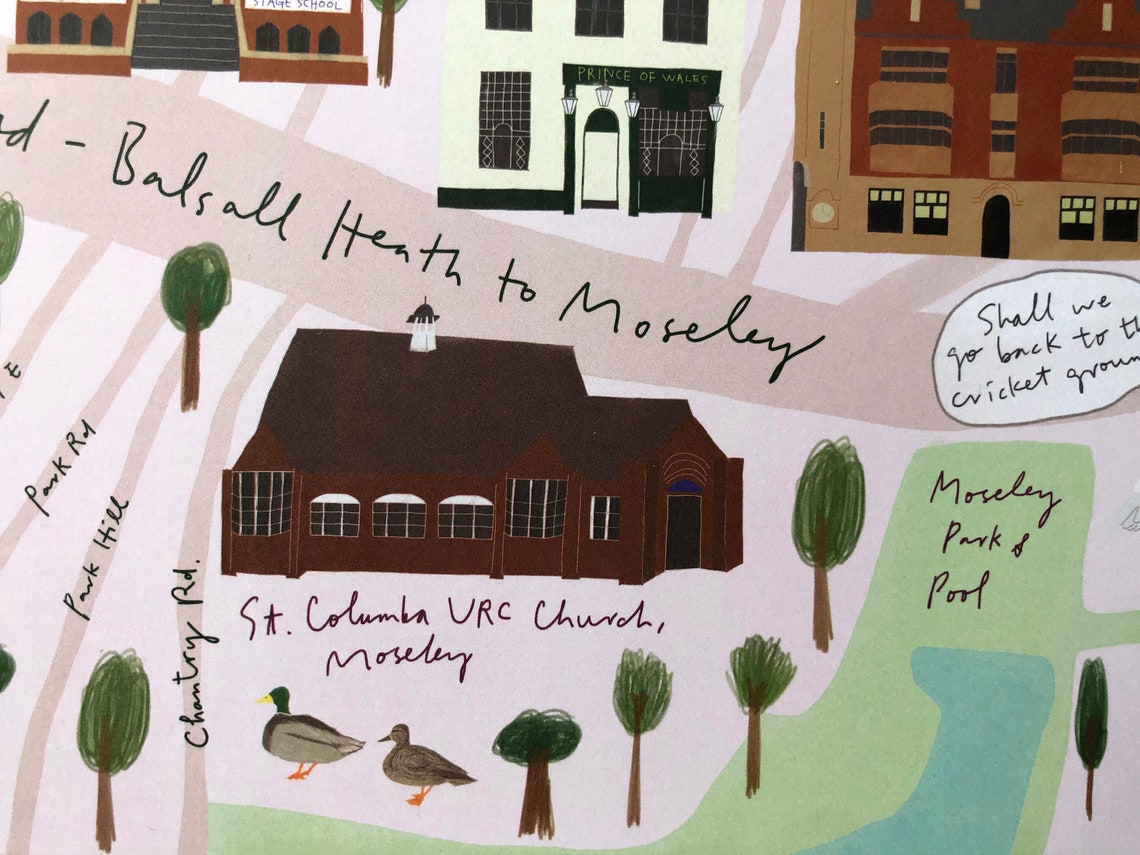 STAGE SCHOOL
PRINCE OF WALES
- Balsall Heath to Moseley
Shall we
go back to
cricket
Park Rd
Park Hill
Chantry Rd.
St. Columba URC Church,
Moseley
Moseley
Park &
Pool